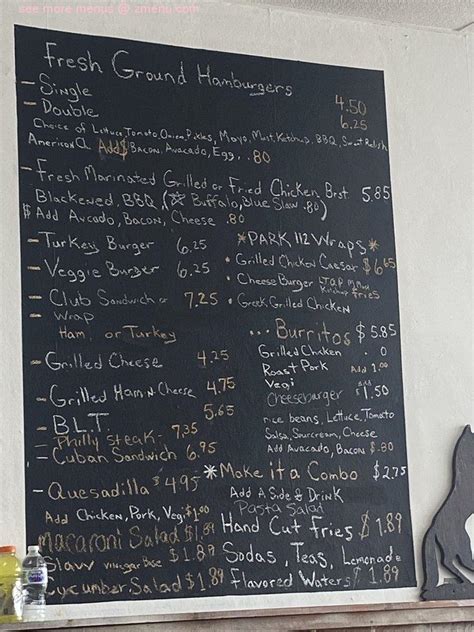 see more menus @ zmenu.com
Fresh Ground Hamburgers
- Single 4.50
- Double 6.25
Choice of Lettuce, Tomato, Onion, Pickles, Mayo, Must, Ketchup, BBQ, Sweet Relish
American Add$ Bacon, Avacado, Egg, . .80
- Fresh Marinated Grilled or Fried Chicken Brst. 5.85
Blackened, BBQ (☆ Buffalo, Blue Slaw .80)
$ Add Avcado, Bacon, Cheese .80
- Turkey Burger 6.25
- Veggie Burger 6.25
- Club Sandwich or 7.25
- Wrap
Ham or Turkey
- Grilled Cheese 4.25
- Grilled Ham N Cheese 4.75
- B.L.T. 5.65
Philly steak 7.35
- Cuban Sandwich 6.95
- Quesadilla $4.95
Add Chicken, Pork, Vegi $1.00
Macaroni Salad $1.89
Slaw vinegar Base $1.89
Cycumber Salad $1.89
*PARK 112 Wraps*
• Grilled Chicken Caesar $6.45
• Cheese Burger LTOP M Must Ketchup fries
• Greek Grilled Chicken
... Burritos $5.85
Grilled Chicken . 0
Roast Pork Add 1.00
Vegi
Cheeseburger Add $1.50
rice beans, Lettuce, Tomato
Salsa, Sourcream, Cheese
Add Avacado, Bacon $.80
*Make it a Combo $2.75
Add A Side & Drink
Pasta Salad
Hand Cut Fries $1.89
Sodas, Teas, Lemonade
Flavored Waters $1.89